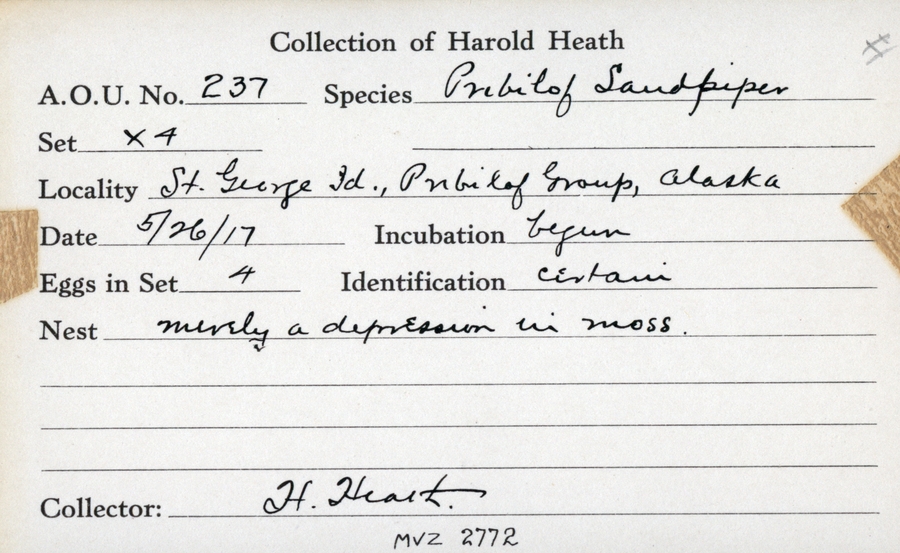 Collection of Harold Heath
#
A.O.U. No. 237 Species Pribilof Sandpiper
Set X4
Locality St. George Id., Pribilof Group, Alaska
Date 5/26/17 Incubation begun
Eggs in Set 4 Identification certain
Nest merely a depression in moss.
Collector: H. Heath.
MVZ 2772